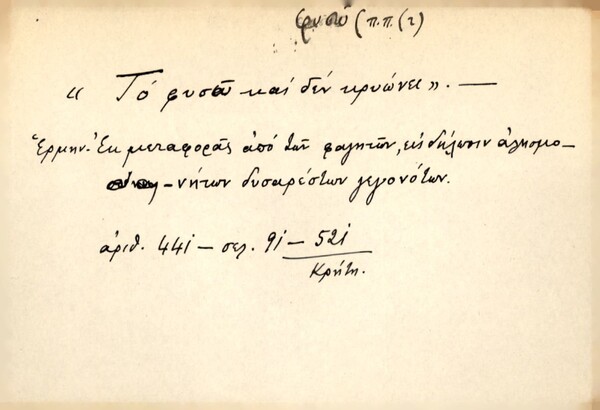 φυσῶ (π.π. (2)
« Τό φυσᾶ καί δέν κρυώνει». —
Ἑρμην. Ἐκ μεταφορᾶς ἀπό τῶν φαγητῶν, εἰς δήλωσιν ἀλησμο-
-νήτων δυσαρέστων γεγονότων.
ἀριθ. 441 — σελ. 91 — 521
Κρήτη.